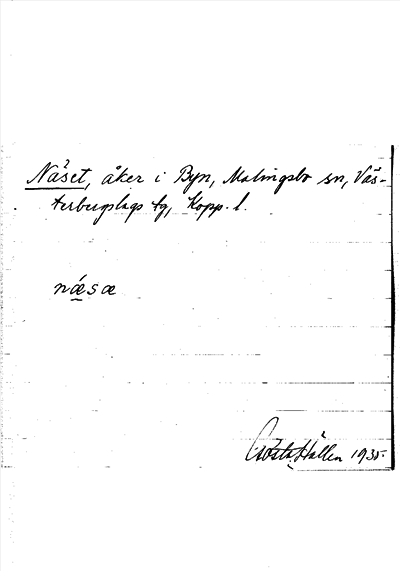 Näset, åker i Byn, Malingsbo sn, Väs-
terbergslags tg, Kopp. l.
næ´sæ
Gösta Hallen 1935.